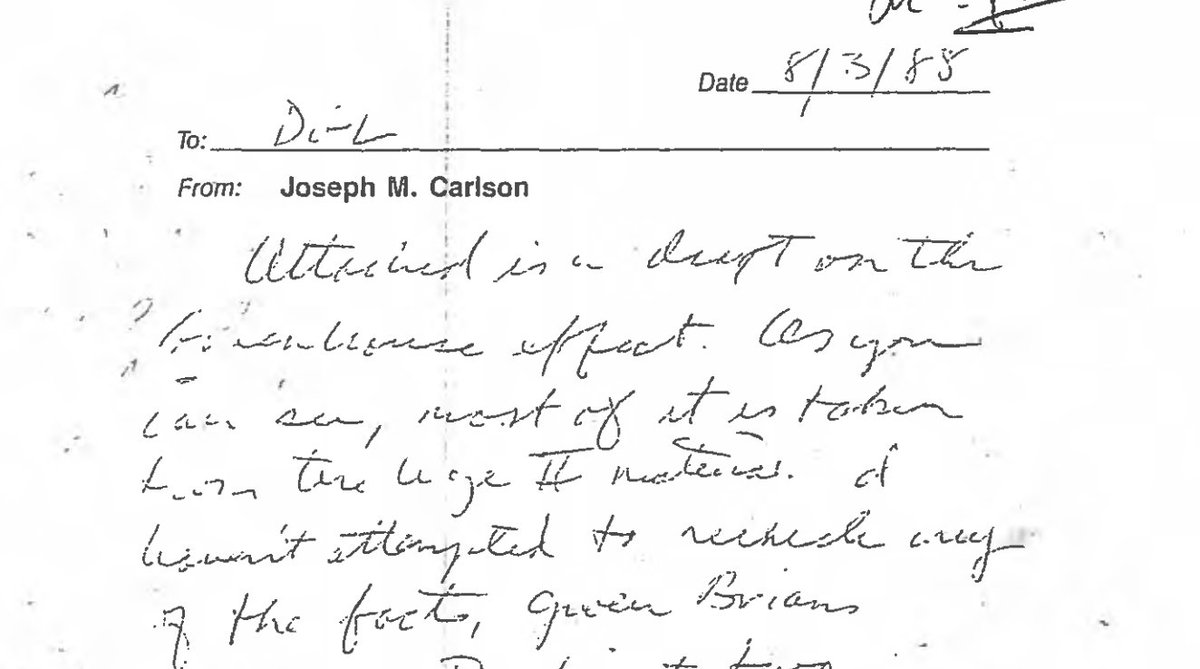 Date 8/3/88
To:
From: Joseph M. Carlson
Attached is a draft on the
Greenhouse effect. As you
can see, most of it is taken
from the II material. I
haven't attempted to recheck any
of the facts, given Brians